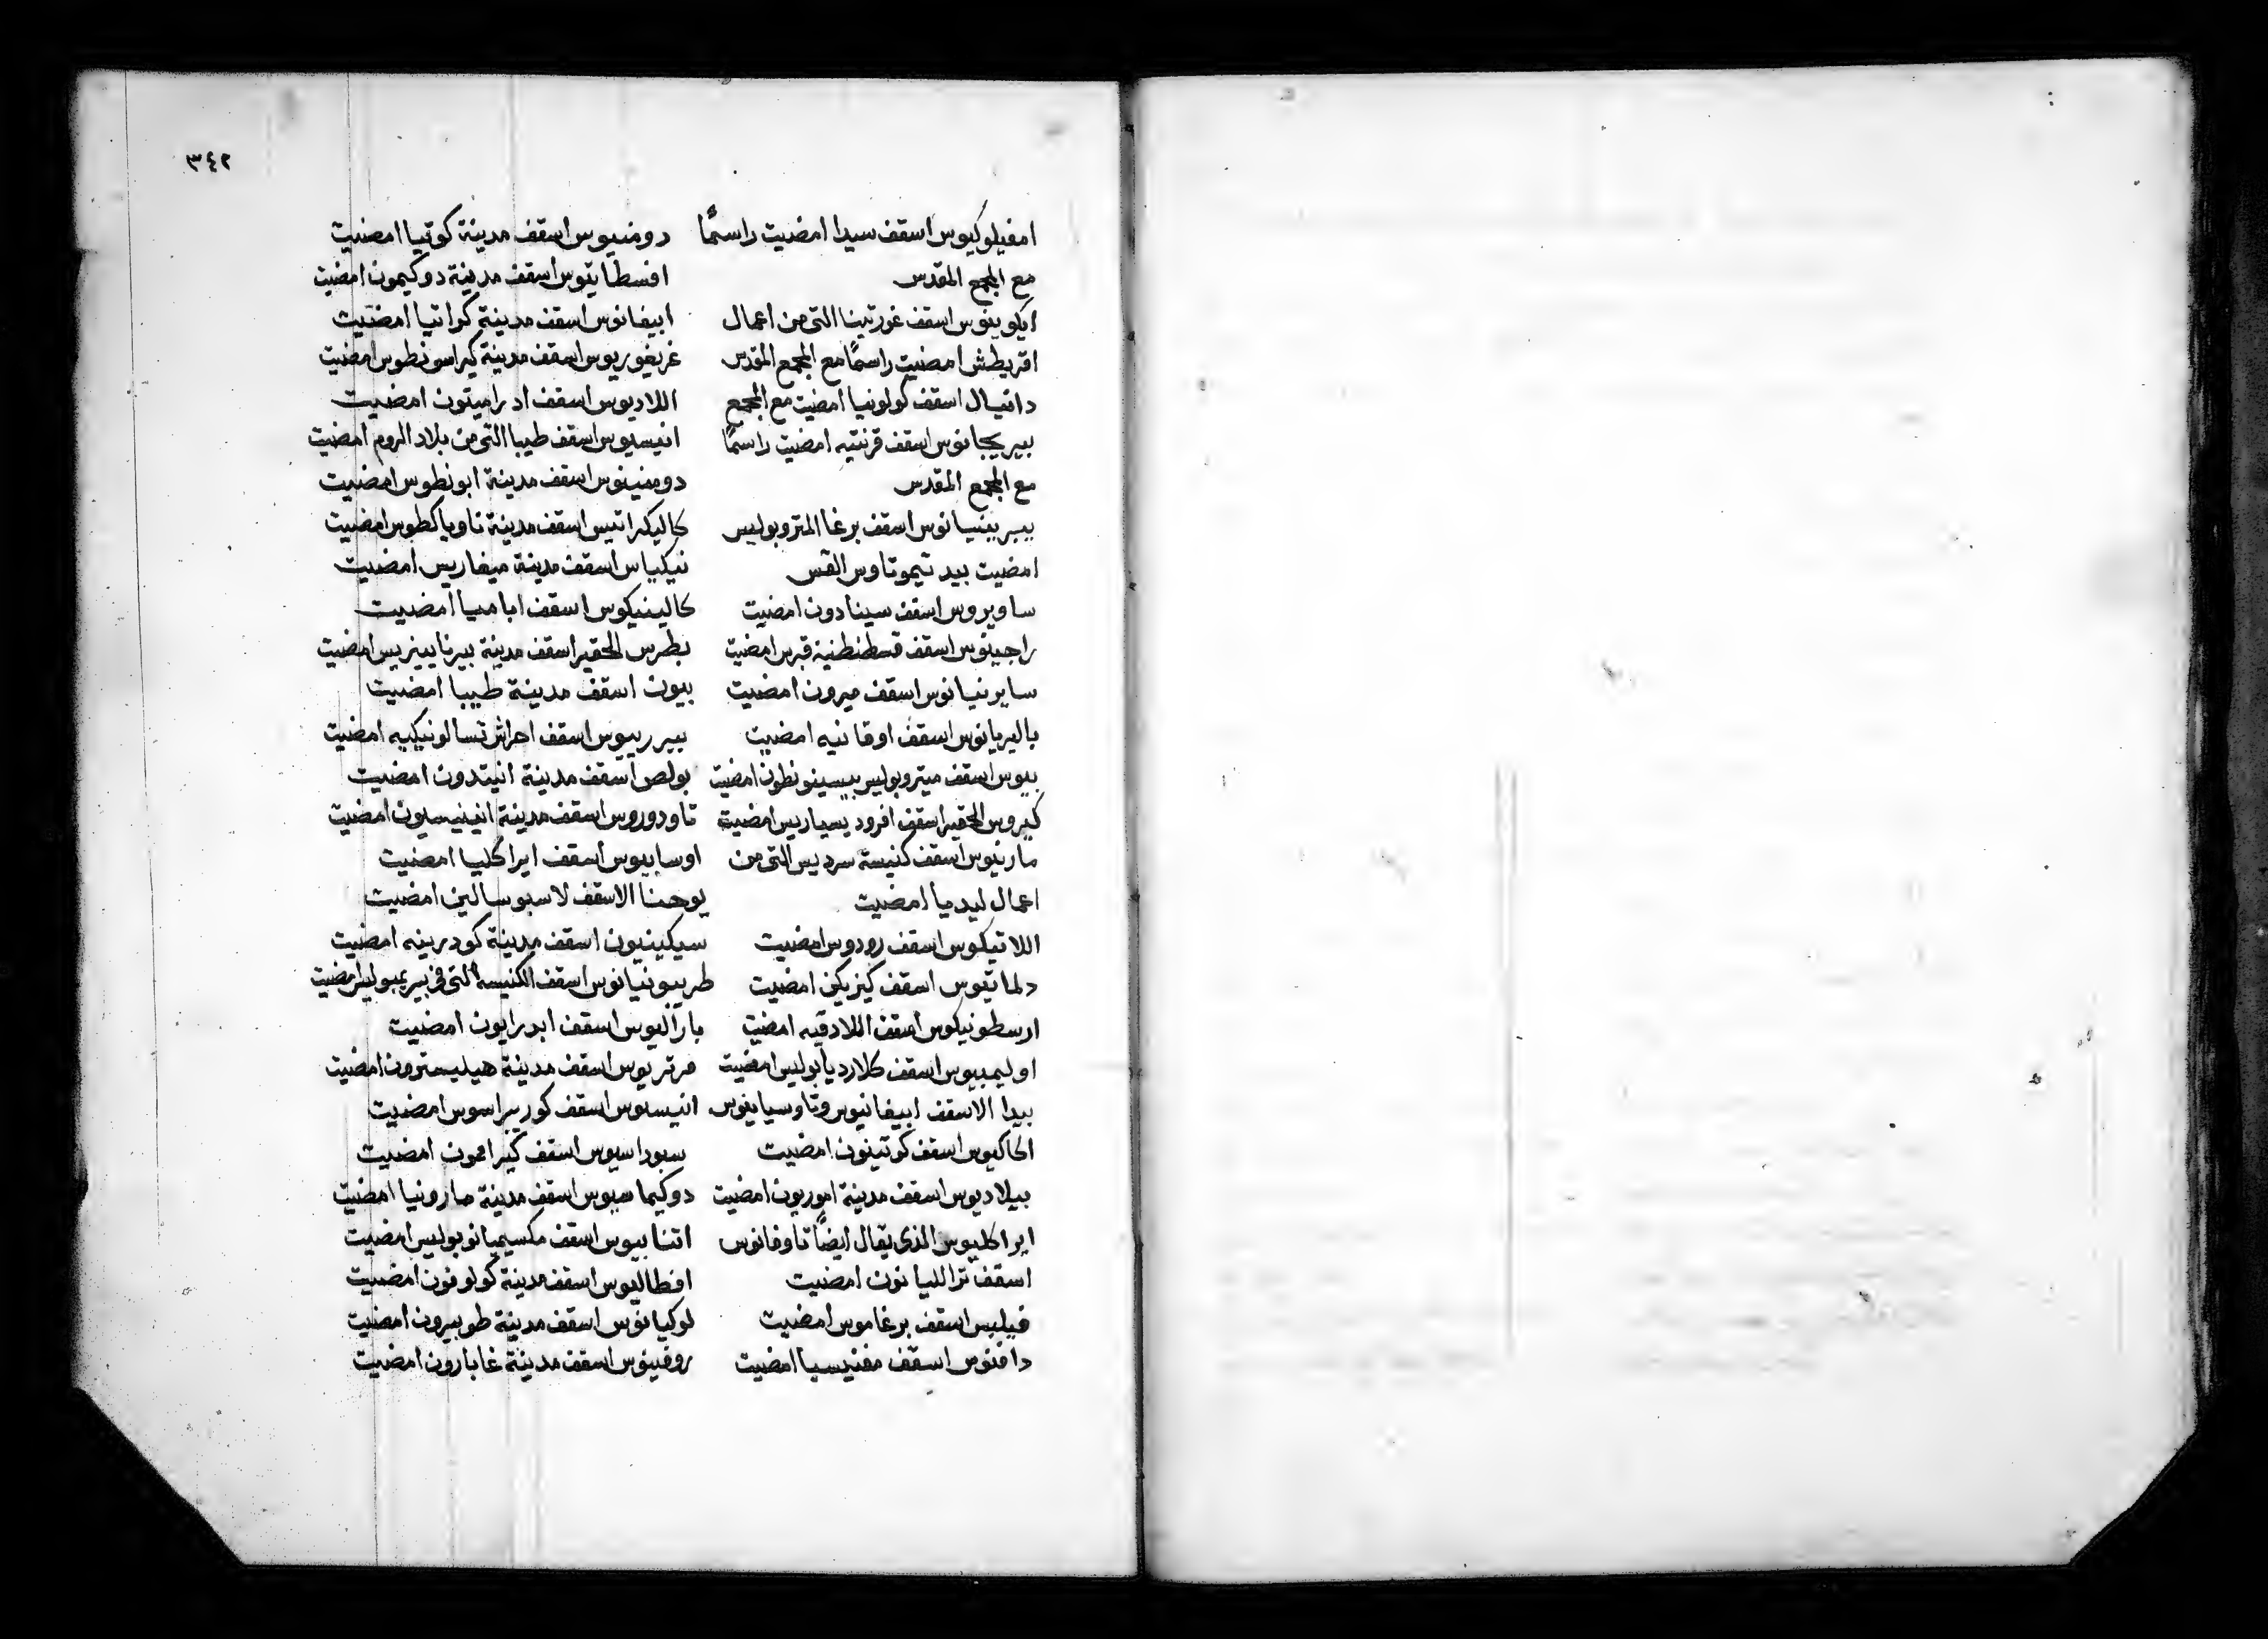 ٣٤٢
امفيلوكيوس اسقف سيدا امضيت راسمًا
مع المجمع المقدس
ايكوينوس اسقف غورتينا التى من اعمال
اقريطش امضيت راسمًا مع المجمع المقدس
دانيال اسقف كولونيا امضيت مع المجمع
اسقف قرنتيه امضيت راسمًا
مع المجمع المقدس
بيربينيانوس اسقف برغا المتروبوليس
امضيت بيد تيموتاوس القس
ساويروس اسقف سينادون امضيت
راجينوس اسقف قسطنطنية قبرس امضيت
سايرنيانوس اسقف ميرون امضيت
باليريانوس اسقف اوقانيه امضيت
بيوس اسقف ميتروبوليس بيسينونطون امضيت
كيروس الحقير اسقف افروديسياريس امضيت
مارينوس اسقف كنيسة سرديس التى من
اعمال ليديا امضيت
اللاتيكوس اسقف رودوس امضيت
دلماتيوس اسقف كيزيكن امضيت
ارسطونيكوس اسقف اللادقيه امضيت
اوليمبيوس اسقف كلارديابوليس امضيت
بيدا الاسقف ابيفانيوس وتاوسيابنوس
الاكيوس اسقف كوتينون امضيت
بيلاديوس اسقف مدينة اموريون امضيت
ايراكليوس الذى يقال ايضًا تاوفانوس
اسقف ترالليانون امضيت
فيلبس اسقف برغاموس امضيت
دافنوس اسقف مغنيسيا امضيت
دومنيوس اسقف مدينة كوتيا امضيت
افسطاتيوس اسقف مدينة دوكيمون امضيت
ابيفانوس اسقف مدينة كراتيا امضيت
غريغوريوس اسقف مدينة كيراسونطوس امضيت
اللاديوس اسقف ادراميتون امضيت
انيسيوس اسقف طيبا التى من بلاد الروم امضيت
دومنينوس اسقف مدينة ابونطوس امضيت
كاليكراتيس اسقف مدينة ناوباكطوس امضيت
نيكياس اسقف مدينة ميغاريس امضيت
كالينيكوس اسقف اباميا امضيت
بطرس الحقير اسقف مدينة امضيت
بيون اسقف مدينة طيبا امضيت
اسقف احراش تسالونيكيه امضيت
بولص اسقف مدينة انيتدون امضيت
تاودوروس اسقف مدينة انينيسيون امضيت
اوسابيوس اسقف ايراكليا امضيت
يوحنا الاسقف لاسبوسالين امضيت
سيكينيون اسقف مدينة كودرينه امضيت
طريبونيانوس اسقف الكنيسه التى فى امضيت
باراليوس اسقف ابدرايون امضيت
مرتريوس اسقف مدينة هيليسترون امضيت
انيسيوس اسقف كوريبراسوس امضيت
سبوداسيوس اسقف كيرامون امضيت
دوكيماسيوس اسقف مدينة مارونيا امضيت
اتنابيوس اسقف مكسيميانوبوليس امضيت
افطاليوس اسقف مدينة كولوفون امضيت
لوكيانوس اسقف مدينة طوبيرون امضيت
روفينوس اسقف مدينة غابارون امضيت